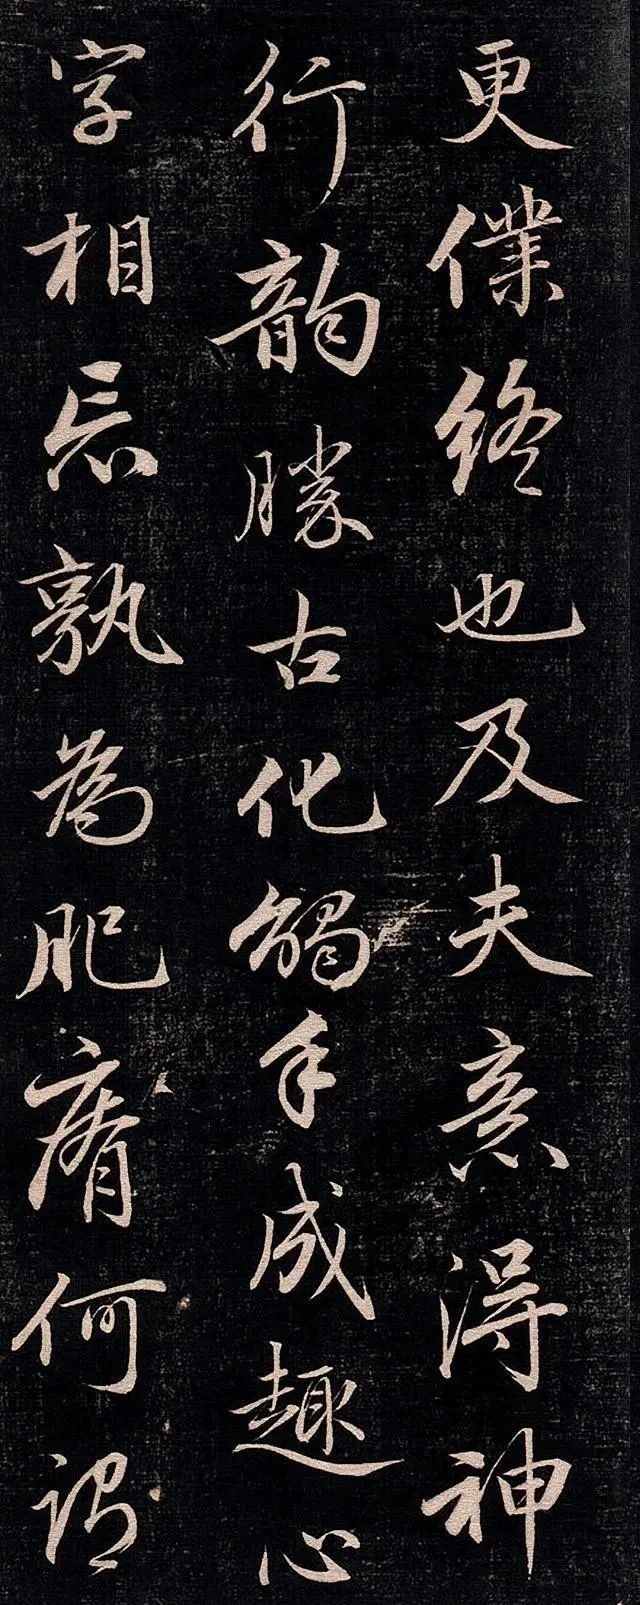 更僕終也及夫意得神
行韻勝古化觸手成趣心
字相忘孰為肥瘠何謂